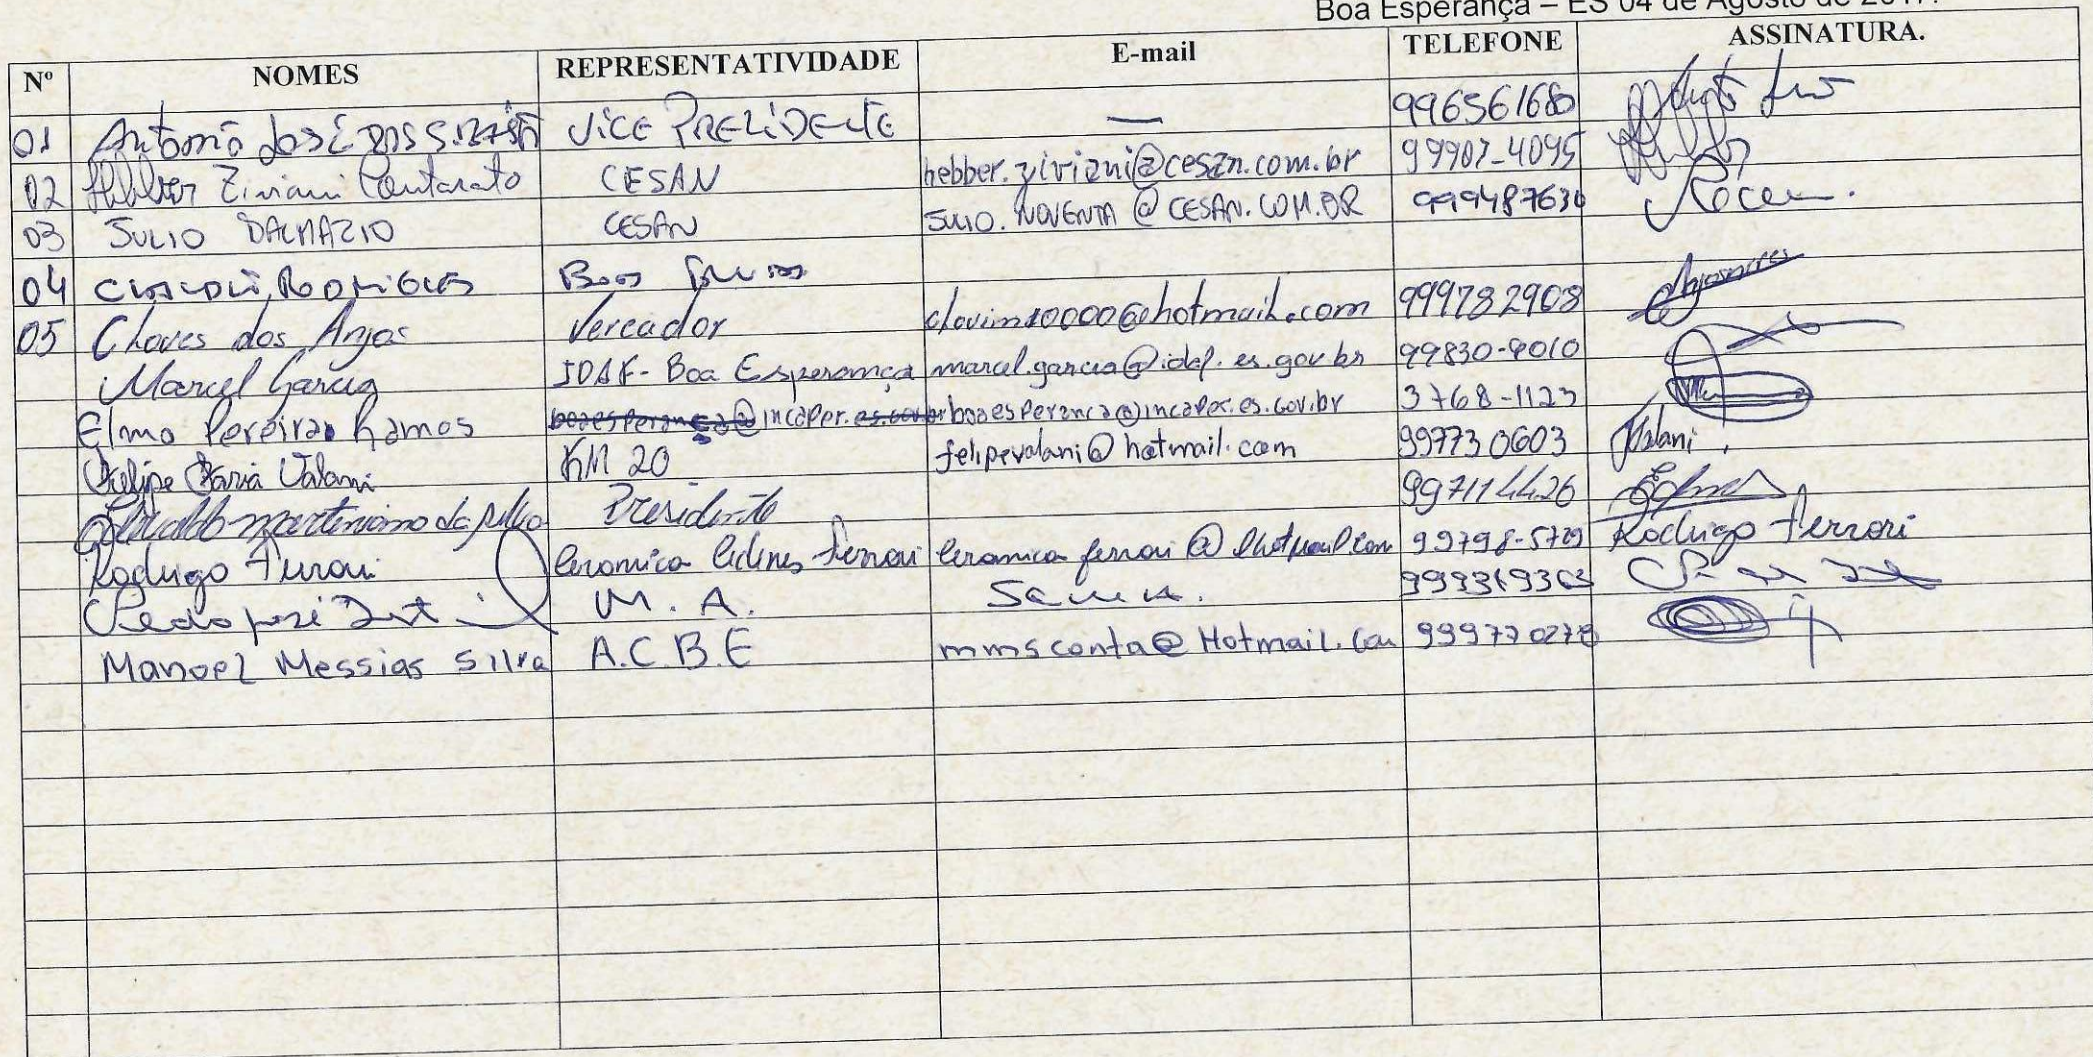 Boa Esperança – ES 04 de Agosto de 2017.
Nº NOMES REPRESENTATIVIDADE E-mail TELEFONE ASSINATURA.
01 Antonio José dos S. VICE PREZIDENTE — 996561680
02 Hebber Ziviani Cantarato CESAN hebber.ziviani@cesan.com.br 99907-4095
03 JULIO DALMAZIO CESAN JULIO.NOVENTA@CESAN.COM.BR 999487630
04 RODRIGUES
05 Choves dos Anjos Vereador clovim10000@hotmail.com 999782908
Marcel Garcia IDAF- Boa Esperança marcel.garcia@idaf.es.gov.br 99830-9010
Elmo Pereira Ramos boaesperanca@incaper.es.gov.br boaesperanca@incaper.es.gov.br 3768-1123
Felipe Faria Valani KM 20 felipevalani@hotmail.com 99773 0603 Valani
martiniano da Presidente 997114426
Rodrigo Ferrari Ceramica Ferrari Ceramica ferrari@hotmail.com 99798-5729 Rodrigo Ferrari
Pedro José M. A. 999319363
Manoel Messias Silva A.C.B.E mmsconta@Hotmail.Com 999770278